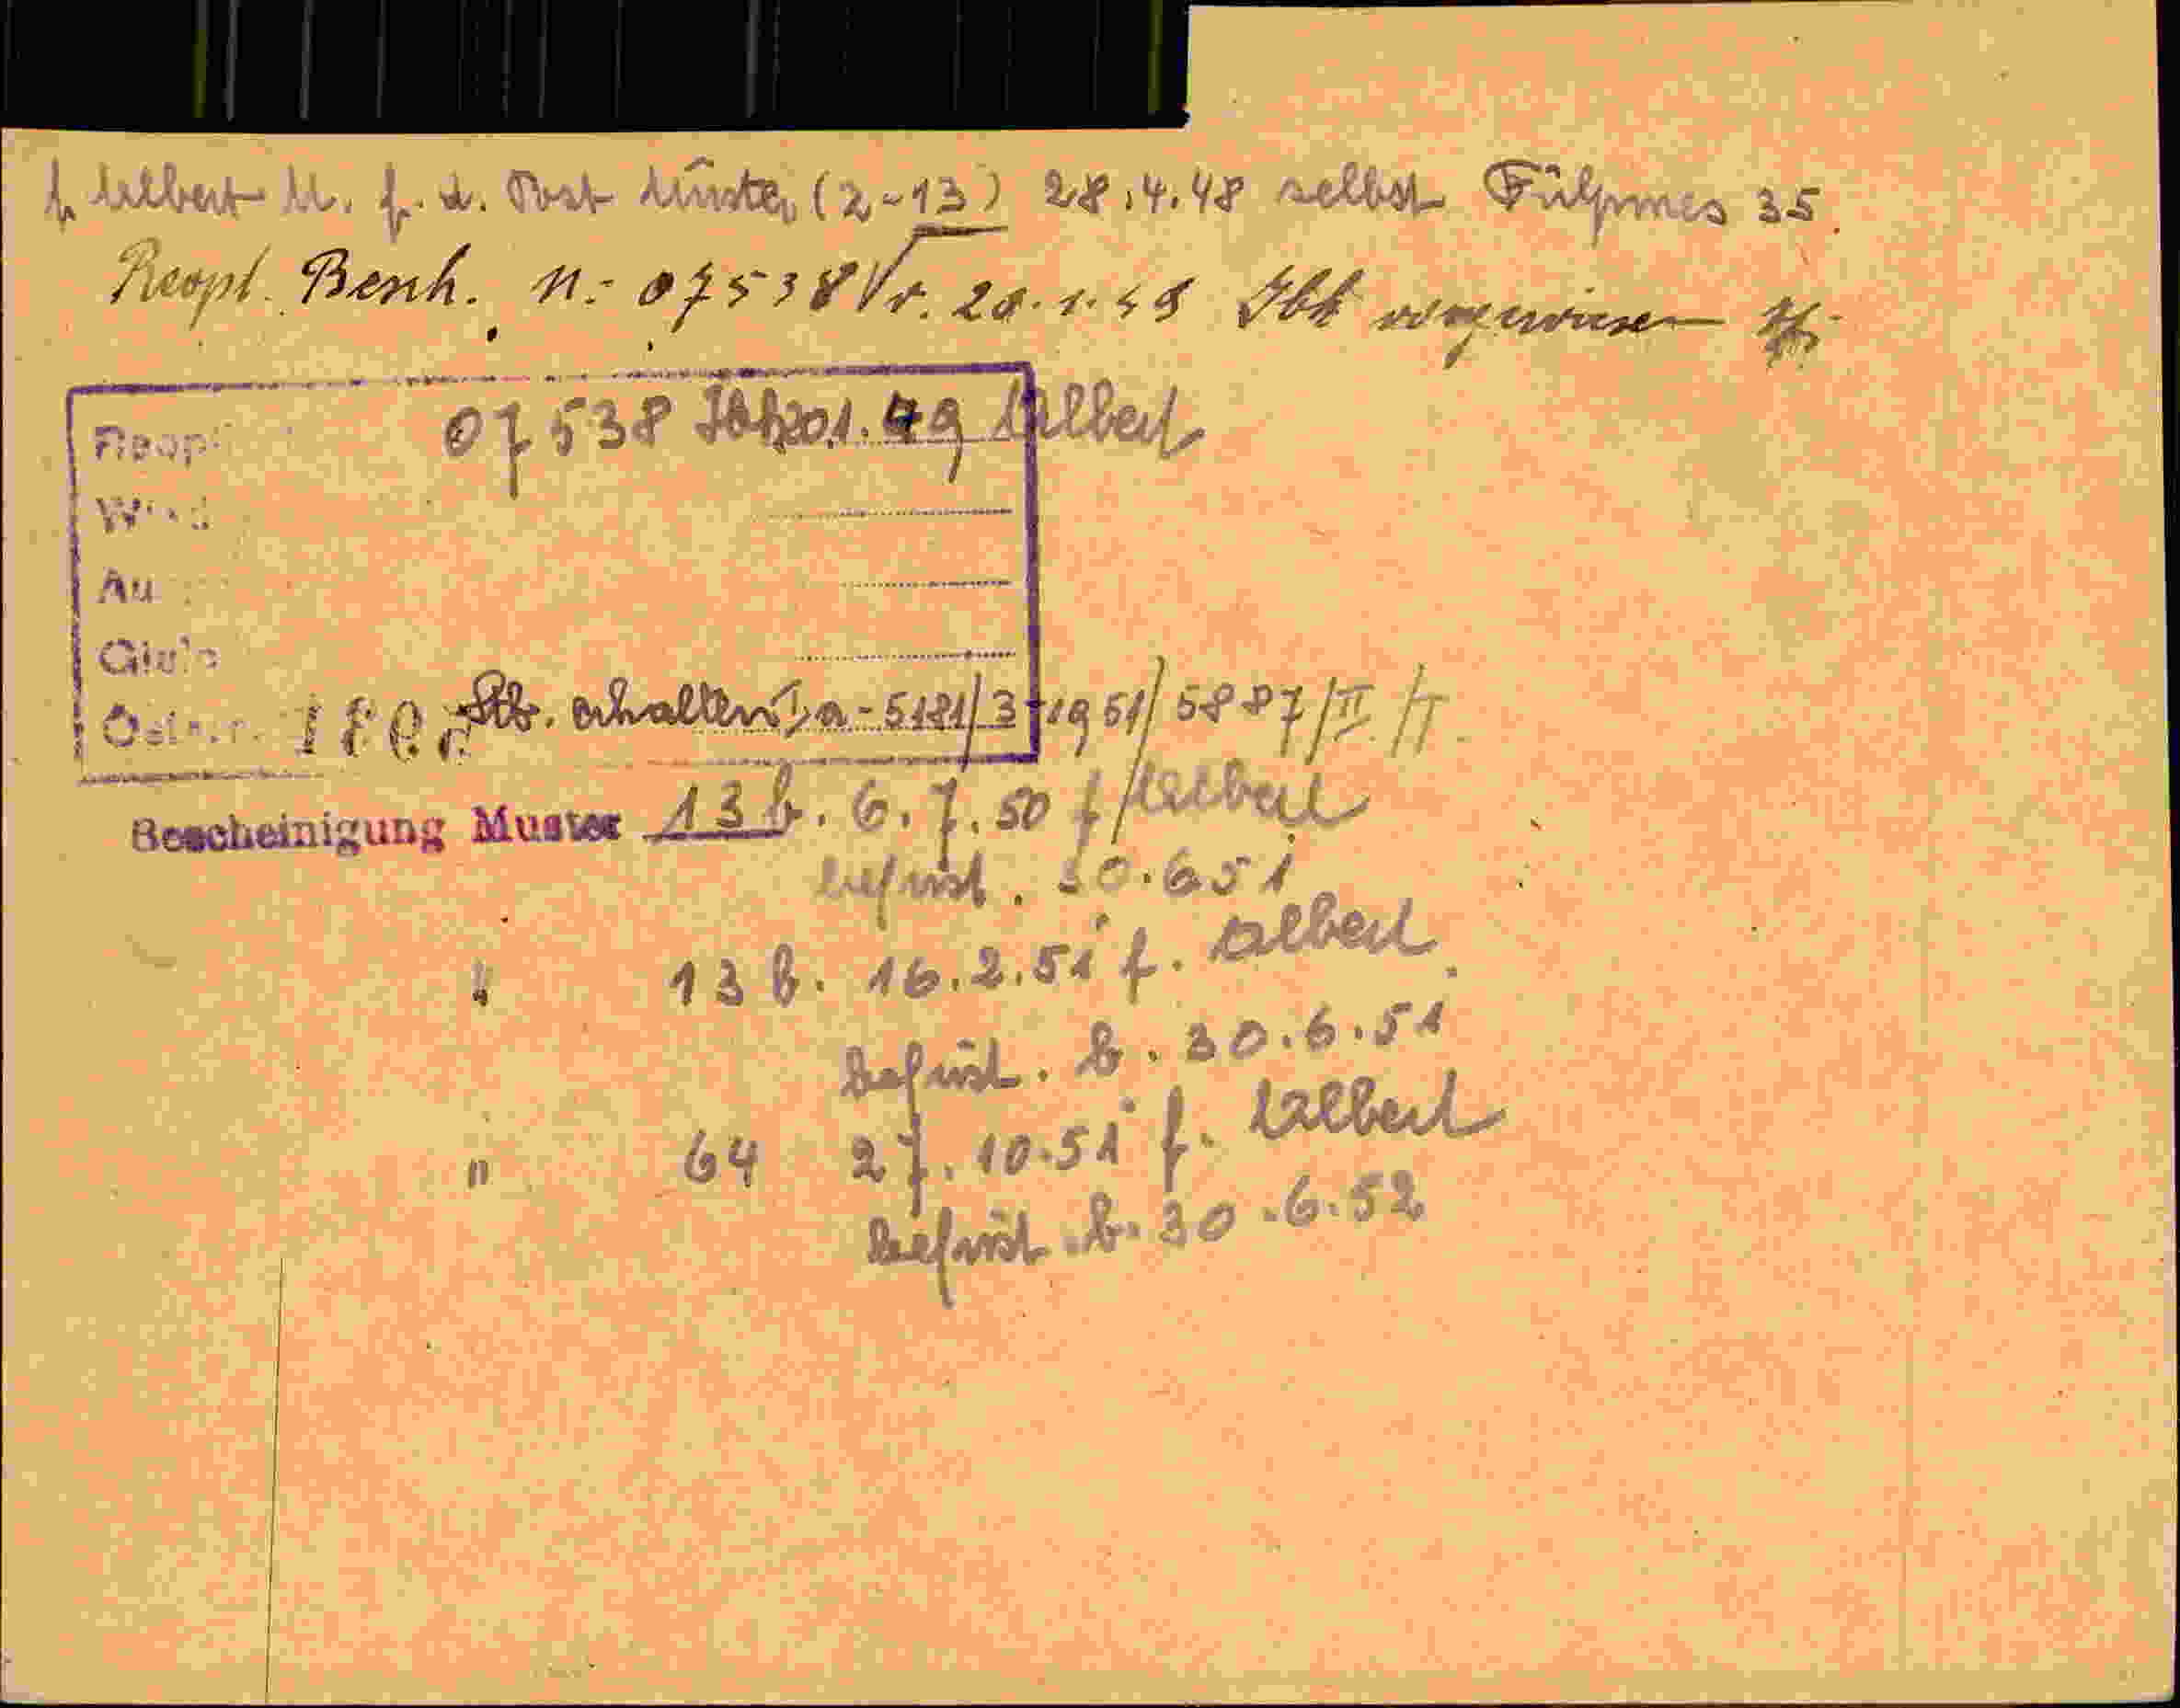 f. Albert M. f. d. Post Muster (2-13) 28.4.48 selbst Fulpmes 35
Reopt. Besch. N: 07538 v. 20.1.49 Ibk vorgewiesen
Reopt 07538 Ibk 20.1.49 Albert
Au
Stb. erhalten Ia-5181/3-1951/5887/II/T.
Bescheinigung Muster 13 b. 6.7.50 f Albert
befrist. 30.6 51
" 13 b. 16.2.51 f. Albert
befrist. b. 30.6.51
" 64 27.10.51 f. Albert
befrist. b. 30.6.52